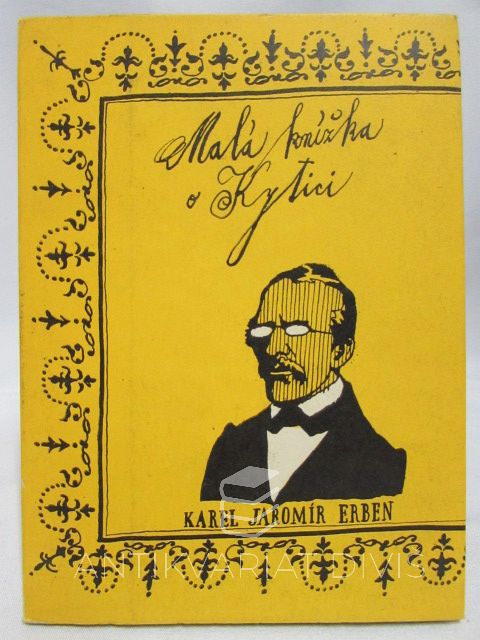 Malá knížka
o Kytici
KAREL JAROMÍR ERBEN
ANTIKVARIÁT DIVIŠ